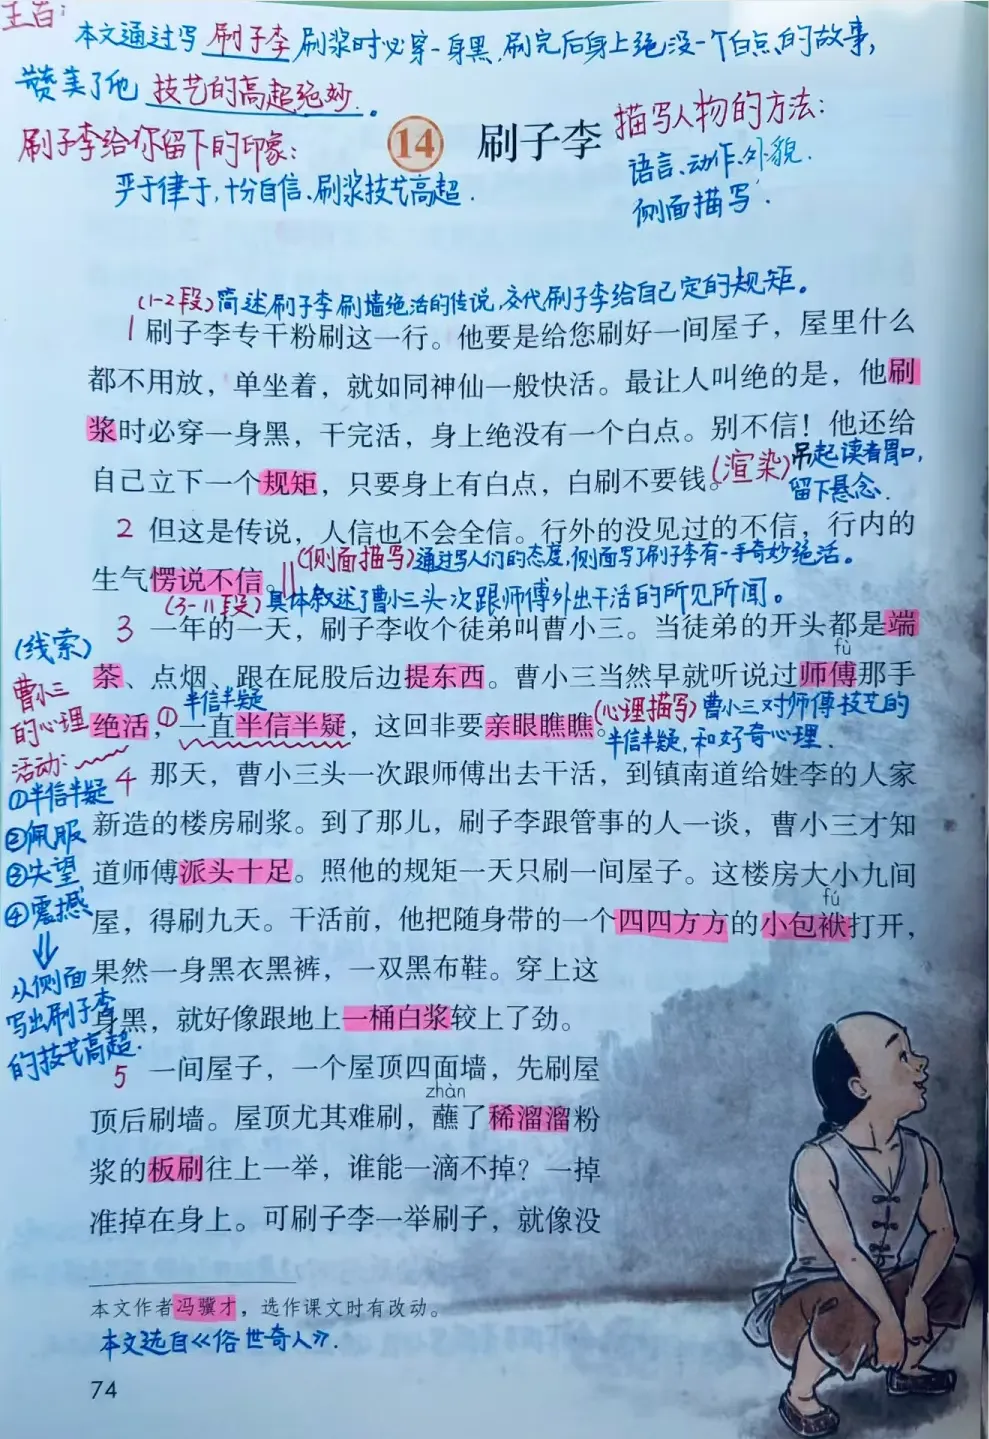 主旨:
本文通过写 刷子李 刷浆时必穿一身黑,刷完后身上绝没一个白点的故事,
赞美了他 技艺的高超绝妙.。
刷子李给你留下的印象:
严于律于,十分自信、刷浆技艺高超.
14 刷子李
描写人物的方法:
语言、动作、外貌.
侧面描写.
(1-2段)简述刷子李刷墙绝活的传说,交代刷子李给自己定的规矩。
1 刷子李专干粉刷这一行。他要是给您刷好一间屋子，屋里什么
都不用放，单坐着，就如同神仙一般快活。最让人叫绝的是，他刷
浆时必穿一身黑，干完活，身上绝没有一个白点。别不信！他还给
自己立下一个规矩，只要身上有白点，白刷不要钱。
(渲染)吊起读者胃口,
留下悬念.
2 但这是传说，人信也不会全信。行外的没见过的不信，行内的
生气愣说不信。
(侧面描写)通过写人们的态度,侧面写了刷子李有一手奇妙绝活。
(3-11段)具体叙述了曹小三头一次跟师傅外出干活的所见所闻。
3 一年的一天，刷子李收个徒弟叫曹小三。当徒弟的开头都是端
fù
茶、点烟、跟在屁股后边提东西。曹小三当然早就听说过师傅那手
半信半疑
绝活，①一直半信半疑，这回非要亲眼瞧瞧。
(心理描写)曹小三对师傅技艺的
半信半疑,和好奇心理.
(线索)
曹小三
的心理
活动:
①半信半疑
②佩服
③失望
④震撼
从侧面
写出刷子李
的技艺高超.
4 那天，曹小三头一次跟师傅出去干活，到镇南道给姓李的人家
新造的楼房刷浆。到了那儿，刷子李跟管事的人一谈，曹小三才知
道师傅派头十足。照他的规矩一天只刷一间屋子。这楼房大小九间
fú
屋，得刷九天。干活前，他把随身带的一个四四方方的小包袱打开，
果然一身黑衣黑裤，一双黑布鞋。穿上这
身黑，就好像跟地上一桶白浆较上了劲。
5 一间屋子，一个屋顶四面墙，先刷屋
zhàn
顶后刷墙。屋顶尤其难刷，蘸了稀溜溜粉
浆的板刷往上一举，谁能一滴不掉？一掉
准掉在身上。可刷子李一举刷子，就像没
本文作者冯骥才，选作课文时有改动。
本文选自《俗世奇人》.
74